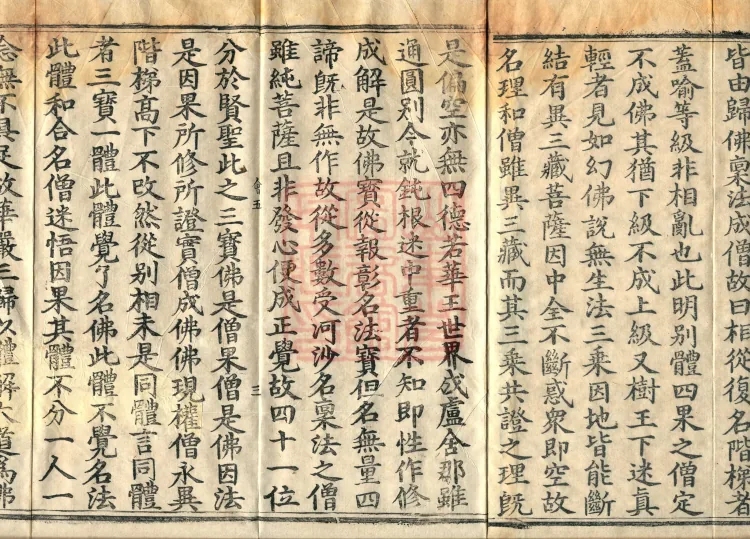 皆由歸佛稟法成僧故曰相從復名階梯者
蓋喻等級非相亂也此明別體四果之僧定
不成佛其猶下級不成上級又樹王下迷真
輕者見如幻佛說無生法三乘因地皆能斷
結有異三藏菩薩因中全不斷惑衆即空故
名理和僧雖異三藏而其三乘共證之理旣
是偏空亦無四德若華王世界成盧舍那雖
通圓別今就鈍根迷中重者不知即性作修
成解是故佛寶從報彰名法寶但名無量四
諦旣非無作故從多數受河沙名稟法之僧
雖純菩薩且非發心便成正覺故四十一位
三
分於賢聖此之三寶佛是僧果僧是佛因法
是因果所修所證實僧成佛佛現權僧永異
階梯高下不改然從別相未是同體言同體
者三寶一體此體覺了名佛此體不覺名法
此體和合名僧迷悟因果其體不分一人一
念無不具足故華嚴三歸以體解大道爲佛